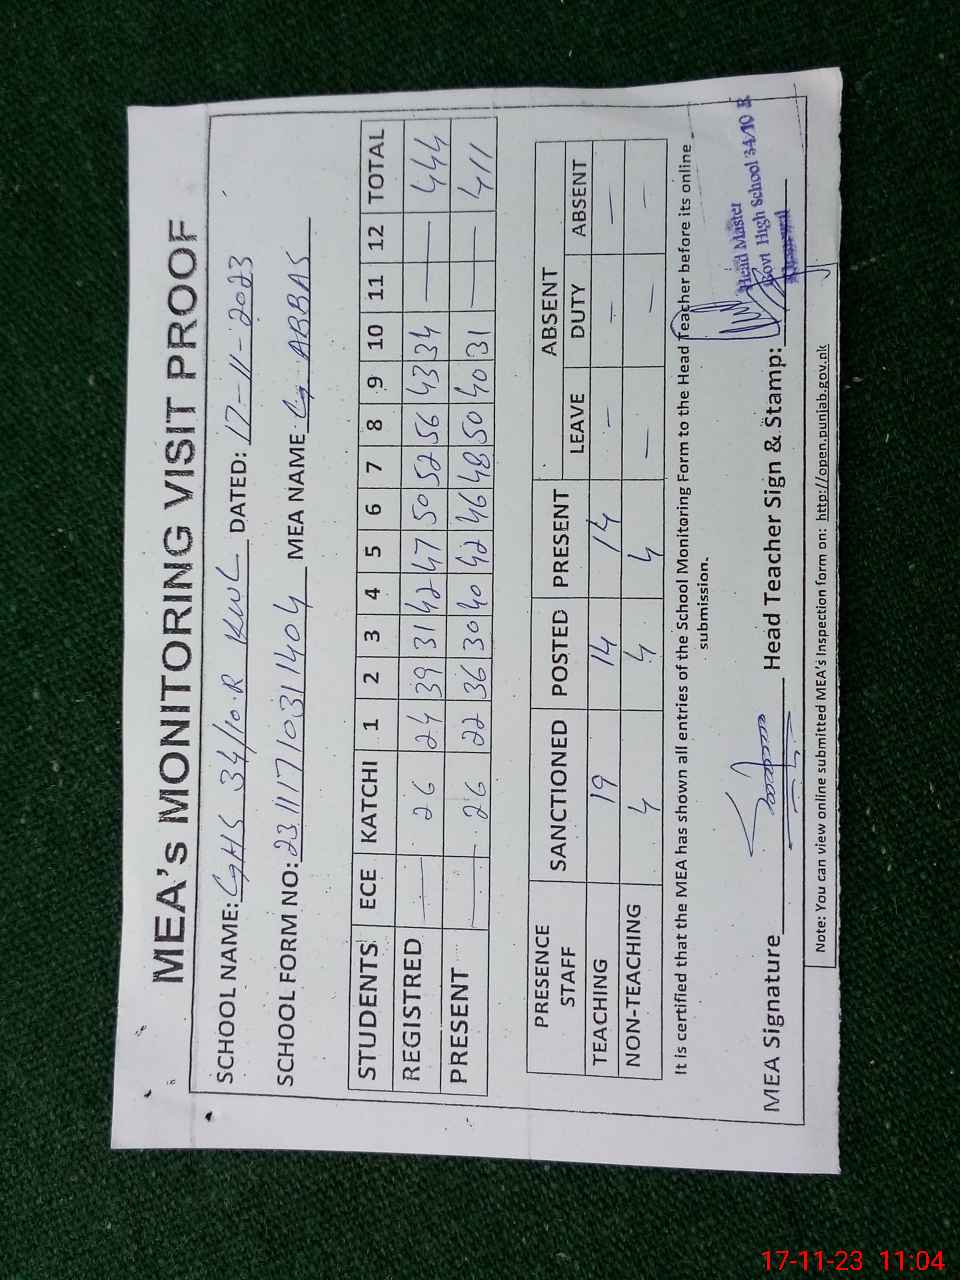 MEA's MONITORING VISIT PROOF
SCHOOL NAME: GHS 34/10.R KWL DATED: 17-11-2023
SCHOOL FORM NO: 23111710311404 MEA NAME G. ABBAS
STUDENTS ECE KATCHI 1 2 3 4 5 6 7 8 9 10 11 12 TOTAL
REGISTRED — 26 24 39 31 42 47 50 52 56 43 34 — — 444
PRESENT — 26 22 36 30 40 42 46 48 50 40 31 — — 411
PRESENCE STAFF SANCTIONED POSTED PRESENT ABSENT
LEAVE DUTY ABSENT
TEACHING 19 14 14 — — —
NON-TEACHING 4 4 4 — — —
It is certified that the MEA has shown all entries of the School Monitoring Form to the Head Teacher before its online
submission.
Head Master
Govt High School 34/10 R
MEA Signature Head Teacher Sign & Stamp:
Note: You can view online submitted MEA's Inspection form on: http://open.punjab.gov.pk
17-11-23 11:04